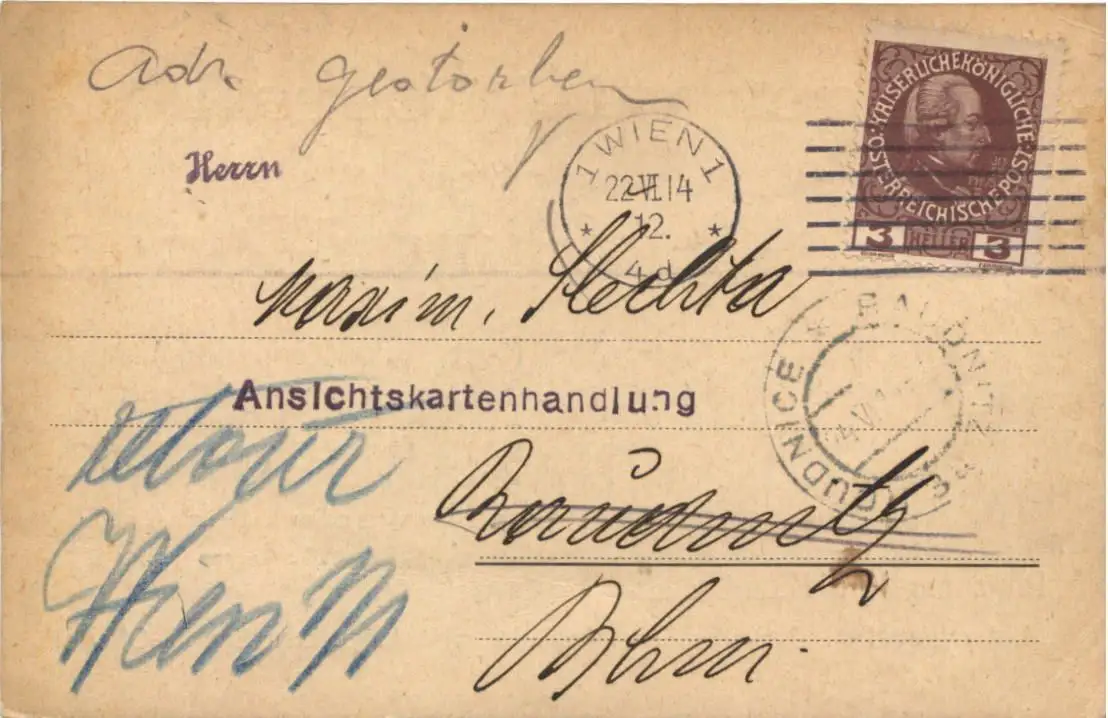 Adr. gestorben
Herrn
1 WIEN 1
22.VI.14
12.
* *
4d
KAISERLICHE KÖNIGLICHE
ÖSTERREICHISCHE POST
3 HELLER 3
Maxim. Slechta
Ansichtskartenhandlung
RAUDNITZ
ROUDNICE
retour
Wien
Raudnitz
Bhm.